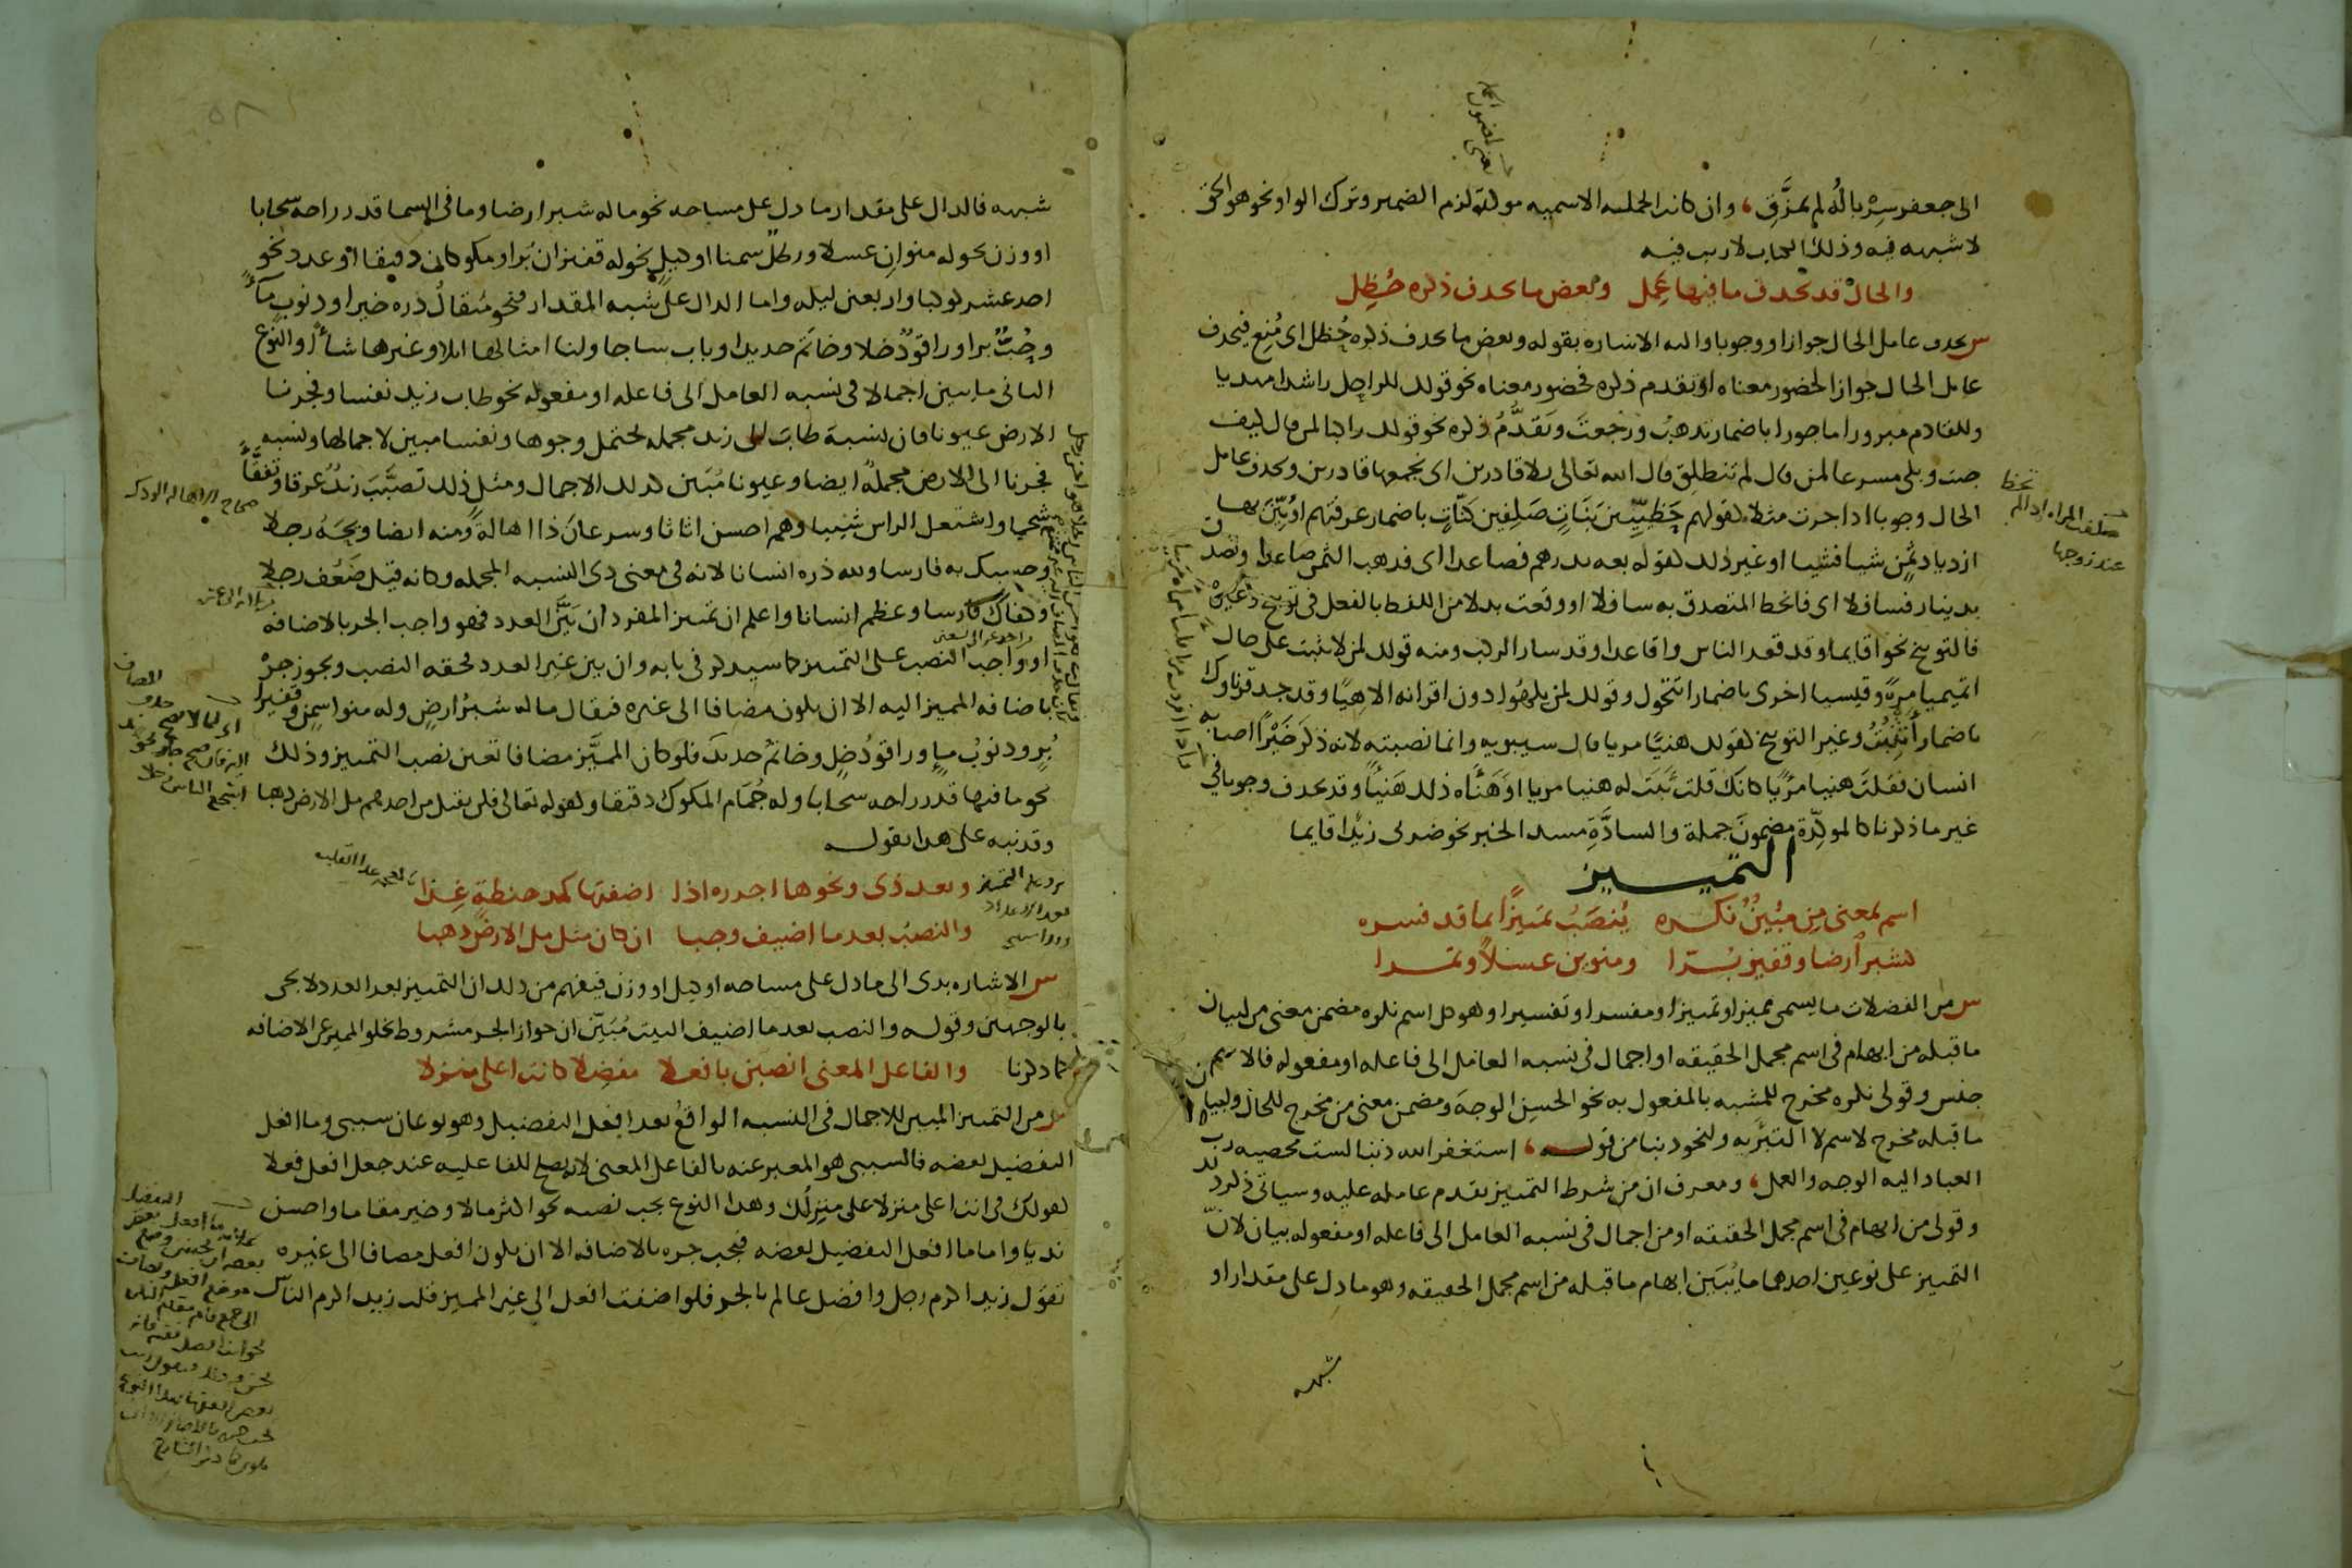 الى جعفر سرباله لم يمزق، وان كانت الجملة الاسميه موكدة لزم الضمير وترك الواو نحو هو الحق
لا شبهه فيه وذلك الكتاب لا ريب فيه
والحال قد يحذف ما فيها عمل وبعض ما يحذف ذكره حظل
س يحذف عامل الحال جوازا ووجوبا واليه الاشاره بقوله وبعض ما يحذف ذكره حظل اى منع فيحذف
عامل الحال جوازا لحضور معناه او تقدم ذكره فحضور معناه نحو قولك للراحل راشدا مهديا
وللقادم مبرورا ماجورا باضمار تذهب ورجعت وتقدم ذكره نحو قولك راكبا لمن قال كيف
جيت وبلى مسرعا لمن قال لم تنطلق قال الله تعالى بلى قادرين اى نجمعها قادرين ويحذف عامل
الحال وجوبا اذا جرت مثلا كقولهم حظيين بنات صلفين كنات باضمار عرفتهم او بين بها
ازدياد ثمن شيا فشيا او غير ذلك كقوله بعه بدرهم فصاعدا اى فذهب الثمن صاعدا وتصدق
بدينار فسافلا اى فانحط المتصدق به سافلا او وقعت بدلا من اللفظ بالفعل فى توبيخ وغيره
فالتوبيخ نحو اقايما وقد قعد الناس واقاعدا وقد سار الركب ومنه قولك لمن لا يثبت على حال
اتميميا مرة وقيسيا اخرى باضمار اتتحول وقولك لمن يلهو دون اقرانه الاهيا وقد جد قرناوك
باضمار اتثبت وغير التوبيخ كقولك هنيا مريا قال سيبويه وانما نصبته لانه ذكر خيرا اصابه
انسان فقلت هنيا مريا كانك قلت ثبت له هنيا مريا او هناه ذلك هنيا وقد يحذف وجوبا فى
غير ما ذكرنا كالموكدة مضمون جملة والسادة مسد الخبر نحو ضربى زيدا قايما
التمييز
اسم بمعنى من مبين نكره ينصب تمييزا بما قد فسره
كشبر ارضا وقفيز برا ومنوين عسلا وتمرا
س من الفضلات ما يسمى مميزا وتمييزا ومفسرا وتفسيرا وهو كل اسم نكره مضمن معنى من لبيان
ما قبله من ابهام فى اسم مجمل الحقيقه او اجمال فى نسبه العامل الى فاعله او مفعوله فالاسم
جنس وقولى نكره مخرج للمشبه بالمفعول به نحو الحسن الوجه ومضمن معنى من مخرج للحال ولبيان
ما قبله مخرج لاسم لا التبريه ولنحو ذنبا من قوله، استغفر الله ذنبا لست محصيه رب
العباد اليه الوجه والعمل، ومعرف ان من شرط التمييز تقدم عامله عليه وسياتى ذكر ذلك
وقولى من ابهام فى اسم مجمل الحقيقه او من اجمال فى نسبه العامل الى فاعله او مفعوله بيان لان
التمييز على نوعين احدهما ما يبين ابهام ما قبله من اسم مجمل الحقيقه وهو ما دل على مقدار او
شبهه
شبهه فالدال على مقدار ما دل على مساحه نحو ما له شبر ارضا وما فى السما قدر راحه سحابا
او وزن نحو له منوان عسلا ورطل سمنا او كيل نحو له قفيزان برا ومكوكان دقيقا او عدد نحو
احد عشر كوكبا واربعين ليله واما الدال على شبه المقدار فنحو مثقال ذره خيرا وذنوب ماء
وحب برا وراقود خلا وخاتم حديدا وباب ساجا ولنا امثالها ابلا وغيرها شاء والنوع
الثانى ما يبين اجمالا فى نسبه العامل الى فاعله او مفعوله نحو طاب زيد نفسا وفجرنا
الارض عيونا فان نسبة طاب الى زيد مجمله تحتمل وجوها ونفسا مبين لاجمالها ونسبه
فجرنا الى الارض مجملة ايضا وعيونا مبين لذلك الاجمال ومثل ذلك تصبب زيد عرقا وتفقا
شحما واشتعل الراس شيبا وهم احسن اثاثا وسرعان ذا اهالة ومنه ايضا ويحه رجلا
وحسبك به فارسا ولله دره انسانا لانه فى معنى ذى النسبه المجمله وكانه قيل ضعف رجلا
وكفاك فارسا وعظم انسانا واعلم ان تمييز المفرد ان بين العدد فهو واجب الجر بالاضافه
او واجب النصب على التمييز كما سيذكر فى بابه وان بين غير العدد فحقه النصب ويجوز جره
باضافه المميز اليه الا ان يكون مضافا الى غيره فيقال ما له شبر ارض وله منوا سمن وقفيزا
بر وذنوب ماء وراقود خل وخاتم حديد فلو كان المميز مضافا تعين نصب التمييز وذلك
نحو ما فيها قدر راحه سحابا وله جمام المكوك دقيقا وكقوله تعالى فلن يقبل من احدهم مل الارض ذهبا
وقد نبه على هذا بقوله
وبعد ذى ونحوها اجرره اذا اضفتها كمد حنطة غذا
والنصب بعد ما اضيف وجبا ان كان مثل مل الارض ذهبا
س الاشاره بذى الى ما دل على مساحه او كيل او وزن فيفهم من ذلك ان التمييز بعد العدد لا يجى
بالوجهين وقوله والنصب بعد ما اضيف البيت مبين ان جواز الجر مشروط بخلو المميز عن الاضافه
كما ذكرنا والفاعل المعنى انصبن بافعلا مفضلا كانت اعلى منزلا
س من التمييز المبين للاجمال فى النسبه الواقع بعد افعل التفضيل وهو نوعان سببى وما افعل
التفضيل بعضه فالسببى هو المعبر عنه بالفاعل المعنى لانه يصلح للفاعليه عند جعل افعل فعلا
كقولك فى انت اعلى منزلا علا منزلك وهذا النوع يجب نصبه نحو اكثر مالا وخير مقاما واحسن
نديا واما ما افعل التفضيل بعضه فيجب جره بالاضافه الا ان يكون افعل مضافا الى غيره
تقول زيد اكرم رجل وافضل عالم بالجر فلو اضفت افعل الى غير المميز قلت زيد اكرم الناس